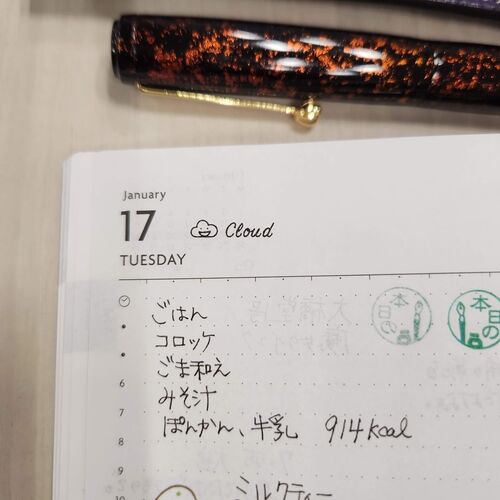 January
17
Cloud
TUESDAY
ごはん
コロッケ
ごま和え
6
みそ汁
7
ぽんかん、牛乳 914kcal
8
9
ミルクティー
10
本日の
本日の